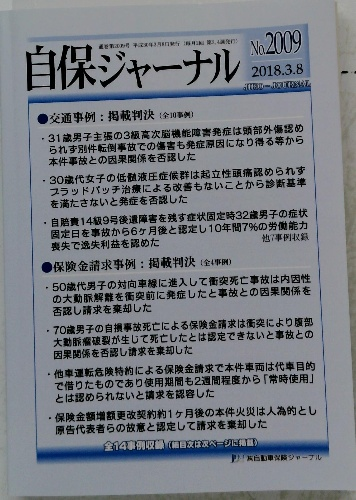 自保ジャーナル
No.2009
2018.3.8
●交通事例：掲載判決（全10事例）
・31歳男子主張の3級高次脳機能障害発症は頭部外傷認め
られず別件転倒事故での傷害も発症原因になり得る等から
本件事故との因果関係を否認した
・30歳代女子の低髄液圧症候群は起立性頭痛認められず
ブラッドパッチ治療による改善もないことから診断基準
を満たさないと発症を否認した
・自賠責14級9号後遺障害を残す症状固定時32歳男子の症状
固定日を事故から6ヶ月後と認定し10年間7%の労働能力
喪失で逸失利益を認めた
他7事例収録
●保険金請求事例：掲載判決（全4事例）
・50歳代男子の対向車線に進入して衝突死亡事故は内因性
の大動脈解離を衝突前に発症したと事故との因果関係を
否認し請求を棄却した
・70歳男子の自損事故死亡による保険金請求は衝突により腹部
大動脈瘤破裂が生じて死亡したとは認定できないと事故との
因果関係を否認し請求を棄却した
・他車運転危険特約による保険金請求で本件車両は代車目的
で借りたものであり使用期間も2週間程度から「常時使用」
とは認められないと請求を認容した
・保険金額増額更改契約約1ヶ月後の本件火災は人為的とし
原告代表者らの故意と認定して請求を棄却した
全14事例収録（細目次は次ページに掲載）
㈱自動車保険ジャーナル